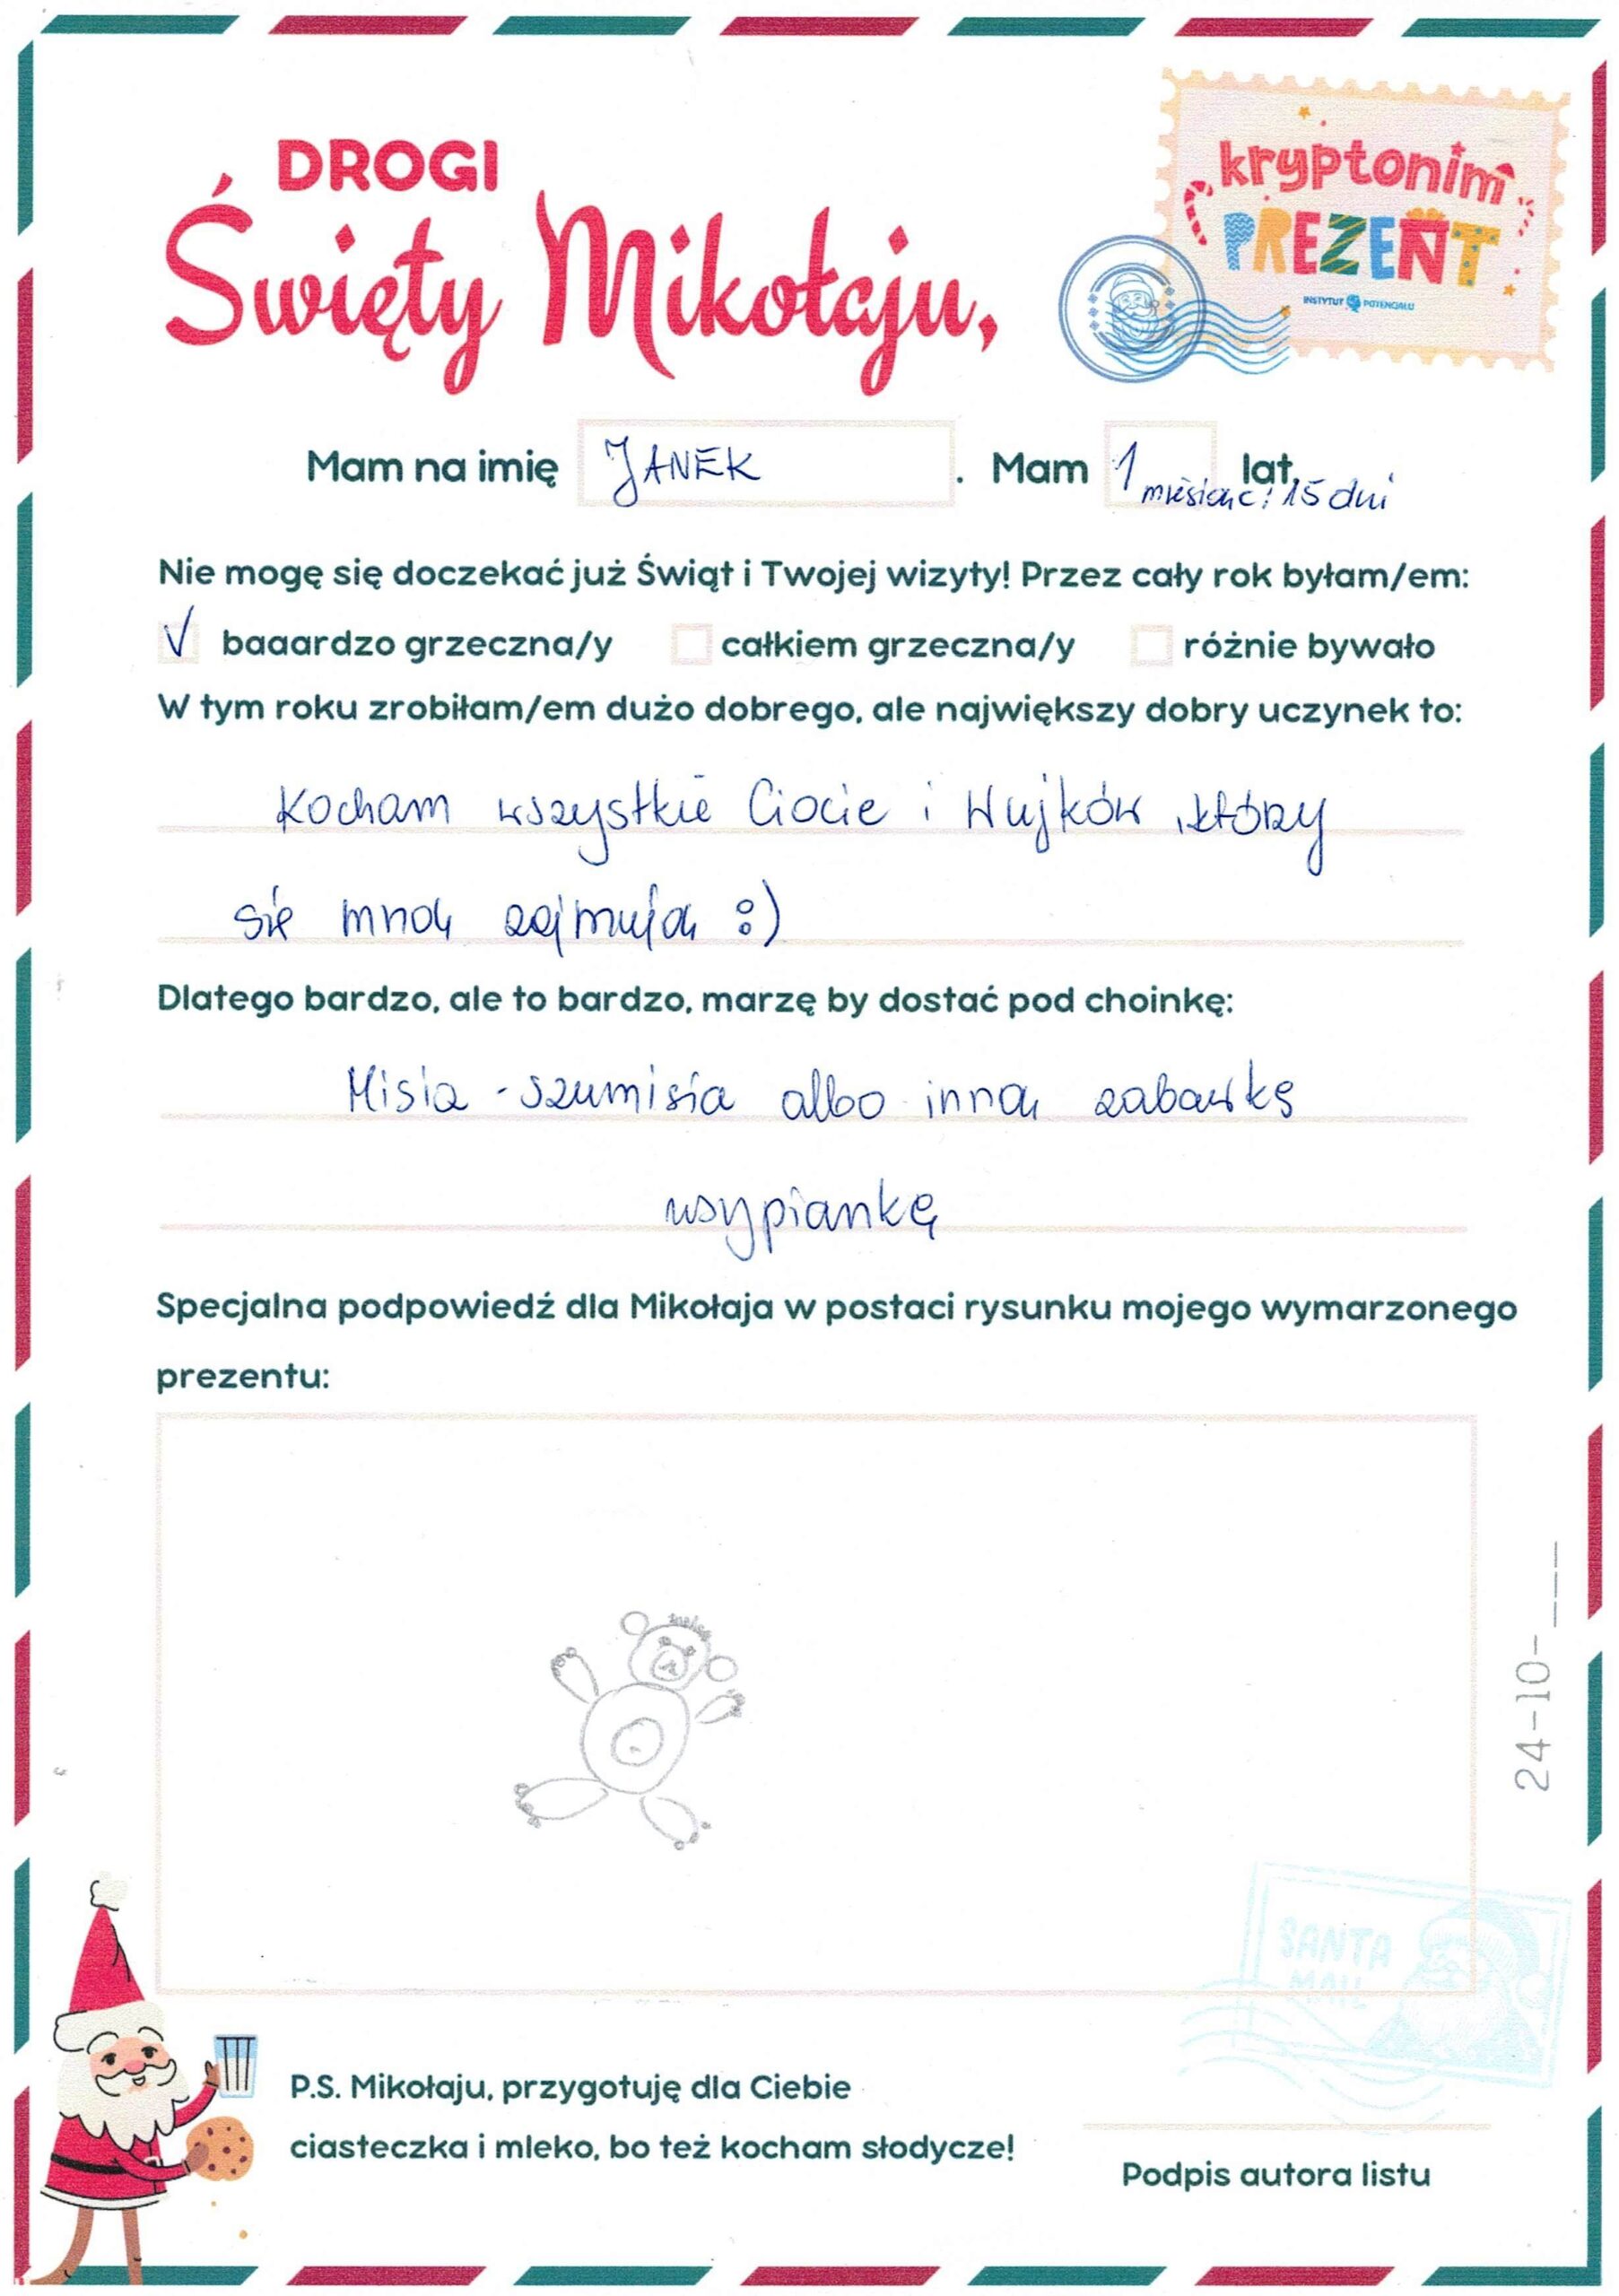 DROGI
Święty Mikołaju,
kryptonim
PREZENT
INSTYTUT POTENCJAŁU
Mam na imię JANEK . Mam 1 lat,
miesiąc i 15 dni
Nie mogę się doczekać już Świąt i Twojej wizyty! Przez cały rok byłam/em:
√ baaardzo grzeczna/y całkiem grzeczna/y różnie bywało
W tym roku zrobiłam/em dużo dobrego, ale największy dobry uczynek to:
Kocham wszystkie Ciocie i Wujków, którzy
się mną zajmują :)
Dlatego bardzo, ale to bardzo, marzę by dostać pod choinkę:
Misia - Szumisia albo inną zabawkę
usypiankę
Specjalna podpowiedź dla Mikołaja w postaci rysunku mojego wymarzonego
prezentu:
24-10-___
SANTA
MAIL
P.S. Mikołaju, przygotuję dla Ciebie
ciasteczka i mleko, bo też kocham słodycze!
Podpis autora listu